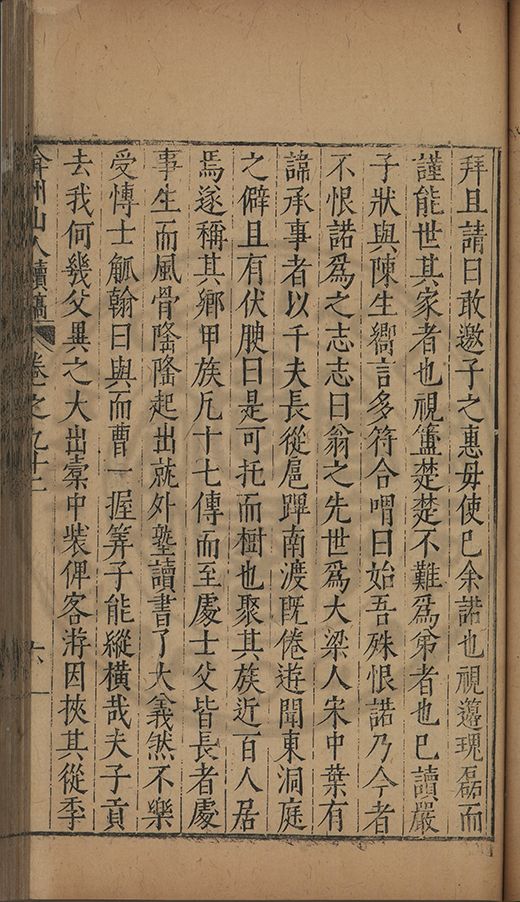 拜且請曰敢邀子之惠毋使已余諾也視瑰磊而
謹能世其家者也視楚楚不難爲弟者也已讀嚴
子狀與陳生嚮言多符合喟曰始吾殊恨諾乃今者
不恨諾爲之志志曰翁之先世爲大梁人宋中葉有
諱承事者以千夫長從扈蹕南渡既倦遊聞東洞庭
之僻且有伏腴曰是可托而樹也聚其族近百人居
焉遂稱其鄉甲族凡十七傳而至處士父皆長者處
事生而風骨隆隆起出就外塾讀書了大義然不樂
受愽士觚翰曰與而曹一握筭子能縱橫哉夫子貢
去我何幾父異之大出橐中裝俾客游因挾其從季
弇州山人續稿 卷之九十二 六